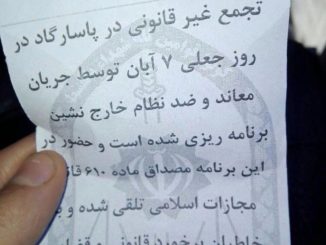 تجمع غیر قانونی در پاسارگاد در
روز جعلی ۷ آبان توسط جریان
معاند و ضد نظام خارج نشین
برنامه ریزی شده است و حضور در
این برنامه مصداق ماده ۶۱۰
مجازات اسلامی تلقی شده و
خاطیان برخورد قانونی و